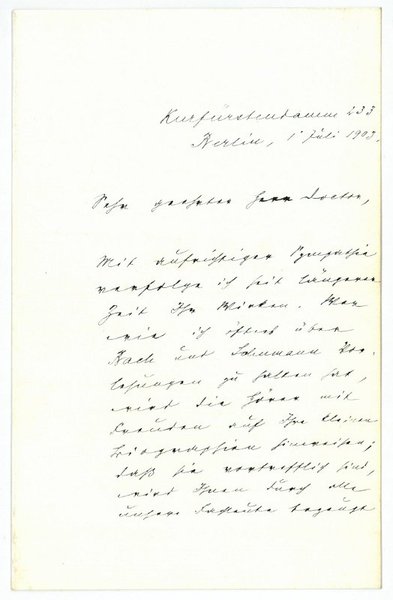 Kurfürstendamm 233
Berlin, 1 Juli 1903.
Sehr geehrter Herr Doctor,
Mit aufrichtiger Sympathie
verfolge ich seit längerer
Zeit Ihr Wirken. Wer
wie ich öfters über
Bach und Schumann Vor-
lesungen zu halten hat,
wird die Hörer mit
Freuden auf Ihre kleinen
Biographien hinweisen;
daß sie vortrefflich sind,
wird Ihnen durch alle
unsere Fachleute bezeugt